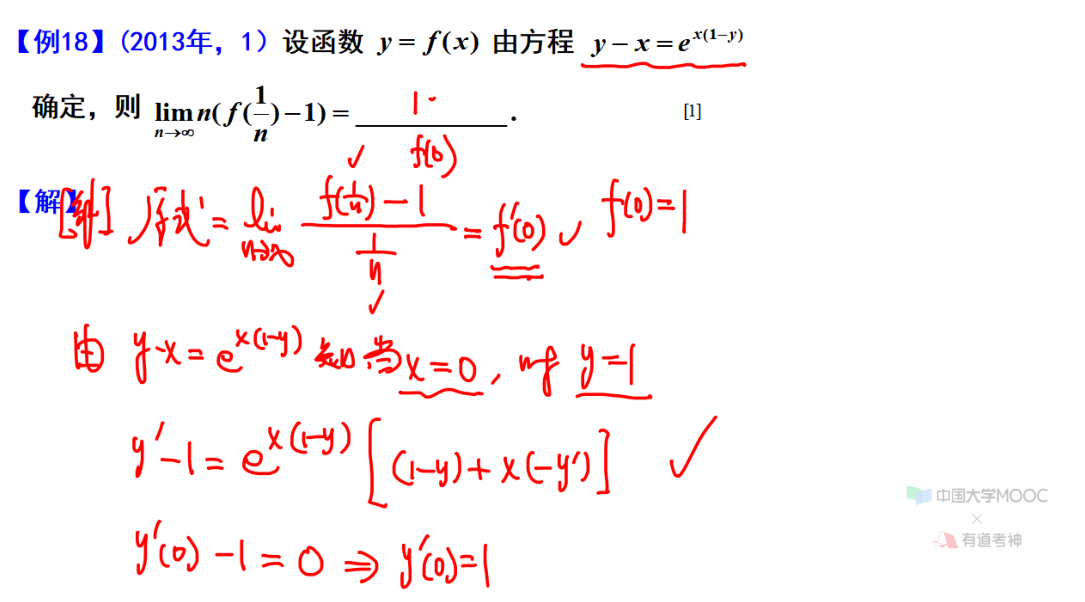 【例18】(2013年，1) 设函数 y = f(x) 由方程 y − x = e^{x(1−y)}
确定，则 lim_{n→∞} n(f(1/n) − 1) = ____1____. [1]
f(0)
【解】[解] 原式 = lim_{n→∞} (f(1/n) − 1)/(1/n) = f'(0) ✓ f(0)=1
由 y-x = e^{x(1-y)} 知 当 x=0, 时 y=1
y' − 1 = e^{x(1-y)} [(1-y) + x(-y')] ✓
y'(0) − 1 = 0 ⇒ y'(0) = 1
中国大学MOOC
×
有道考神